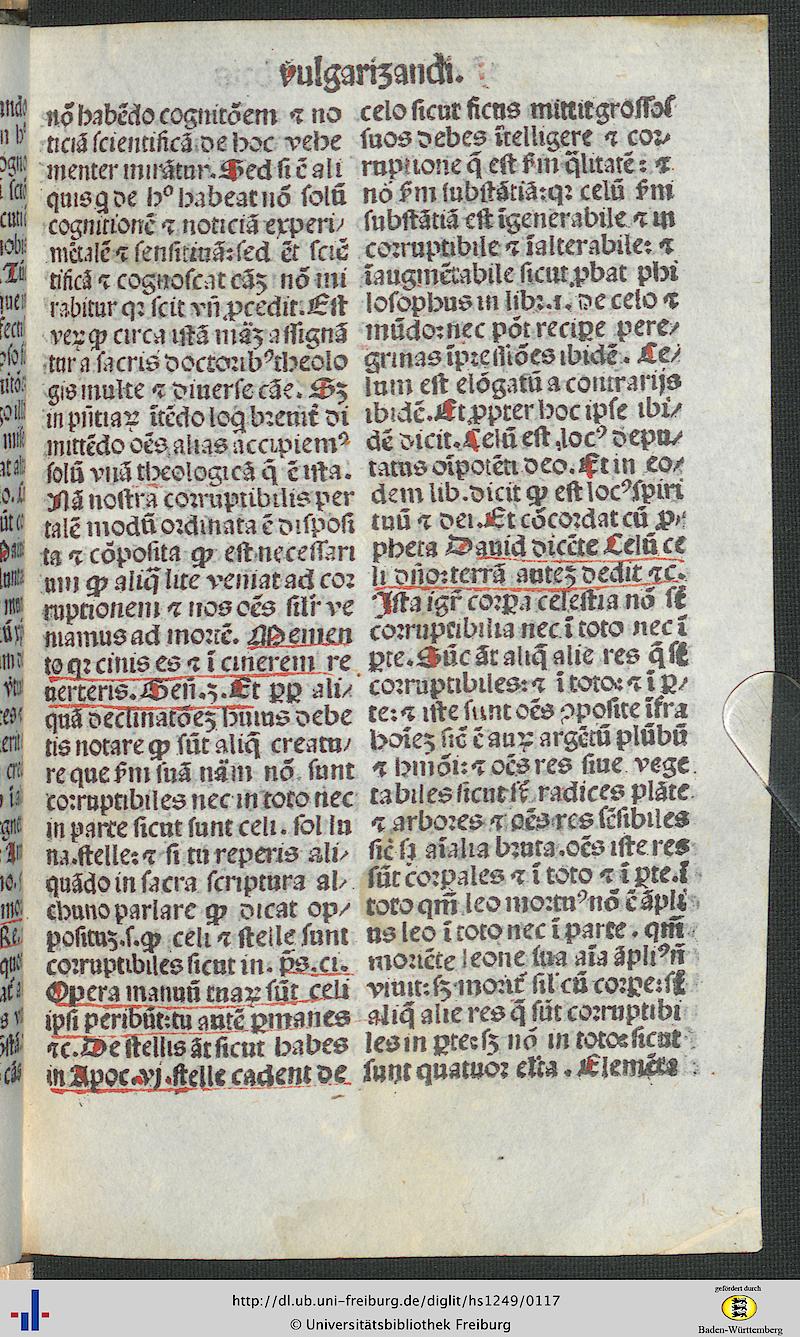 vulgarizandi.
nō habēdo cognitōem ⁊ no
ticiā scientificā de hoc vehe
menter mirātur. Sed si ē ali
quis q de hº habeat nō solū
cognitionē ⁊ noticiā experi/
mētalē ⁊ sensitiuā: sed ēt sciē
tificā ⁊ cognoscat cāꝫ nō mi
rabitur qꝛ scit vñ ꝓcedit. Est
veꝝ ꝙ circa istā māꝫ assignā
tur a sacris doctoribꝰ theolo
gis multe ⁊ diuerse cāe. Sꝫ
in pñtiaꝝ ītēdo loq breuit̄ di
mittēdo oēs alias accipiemꝰ
solū vnā theologicā q̄ ē ista.
Nā nostra corruptibilis per
talē modū ordinata ē disposi
ta ⁊ cōposita ꝙ est necessari
um ꝙ aliq̄ lite veniat ad cor
ruptionem ⁊ nos oēs silr̄ ve
niamus ad mortē. Memen
to qꝛ cinis es ⁊ ī cinerem re
uerteris. Geñ. 3. Et ꝓp ali/
quā declinatōeꝫ huius debe
tis notare ꝙ sūt aliq̄ creatu/
re que ẜm suā nām nō sunt
corruptibiles nec in toto nec
in parte sicut sunt celi. sol lu
na. stelle: ⁊ si tu reperis ali/
quādo in sacra scriptura al/
chuno parlare ꝙ dicat op/
posituꝫ. s. ꝙ celi ⁊ stelle sunt
corruptibiles sicut in. ps̄. ci.
Opera manuū tuaꝝ sūt celi
ipsi peribūt: tu autē ꝑmanes
⁊c. De stellis āt sicut habes
in Apoc. vj. stelle cadent de
celo sicut ficus mittit grossos
suos debes ītelligere ⁊ cor/
ruptione q̄ est ẜm q̄litatē: ⁊
nō ẜm substātiā: qꝛ celū ẜm
substātiā est īgenerabile ⁊ in
corruptibile ⁊ īalterabile: ⁊
īaugmētabile sicut ꝓbat phi
losophus in libꝛ. 1. de celo ⁊
mūdo: nec pōt recipe pere/
grinas īpressiōes ibidē. Ce/
lum est elōgatū a contrarijs
ibidē. Et ꝓpter hoc ipse ibi/
dē dicit. Celū est locꝰ depu/
tatus oīpotēti deo. Et in eo/
dem lib. dicit ꝙ est locꝰ spiri
tuū ⁊ dei. Et cōcordat cū ꝓ/
pheta Dauid dicēte Celū ce
li dño: terrā auteꝫ dedit ⁊c.
Ista igr̄ corꝑa celestia nō st̄
corruptibilia nec ī toto nec ī
ꝑte. Sūt āt aliq̄ alie res q̄ st̄
corruptibiles: ⁊ ī toto: ⁊ ī ꝑ/
te: ⁊ iste sunt oēs ꝯposite īfra
hoīeꝫ sic̄ ē auꝝ argētū plūbū
⁊ hmōi: ⁊ oēs res siue vege
tabiles sicut st̄ radices plāte
⁊ arbores ⁊ oēs res sēsibiles
sic̄ sī aīalia bruta. oēs iste res
sūt corꝑales ⁊ ī toto ⁊ ī ꝑte. ī
toto qm̄ leo mortuꝰ nō ē āpli
us leo ī toto nec ī parte. qm̄
moriēte leone sua aīa āpliꝰ ñ
viuit: sꝫ morit̄ sil̄ cū corꝑe: st̄
aliq̄ alie res q̄ sūt corruptibi
les in ꝑte: sꝫ nō in toto: sicut
sunt quatuor elta. Elemēta
http://dl.ub.uni-freiburg.de/diglit/hs1249/0117
© Universitätsbibliothek Freiburg
gefördert durch
Baden-Württemberg